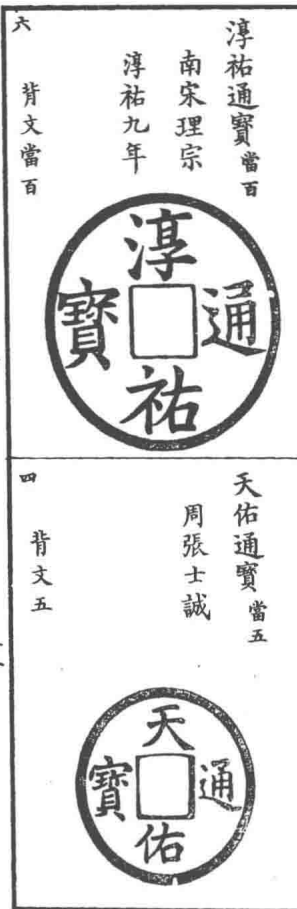 淳祐通寶當百
南宋理宗
淳祐九年
背文當百
六
淳
祐
通
寶
天佑通寶當五
周張士誠
背文五
四
天
佑
通
寶